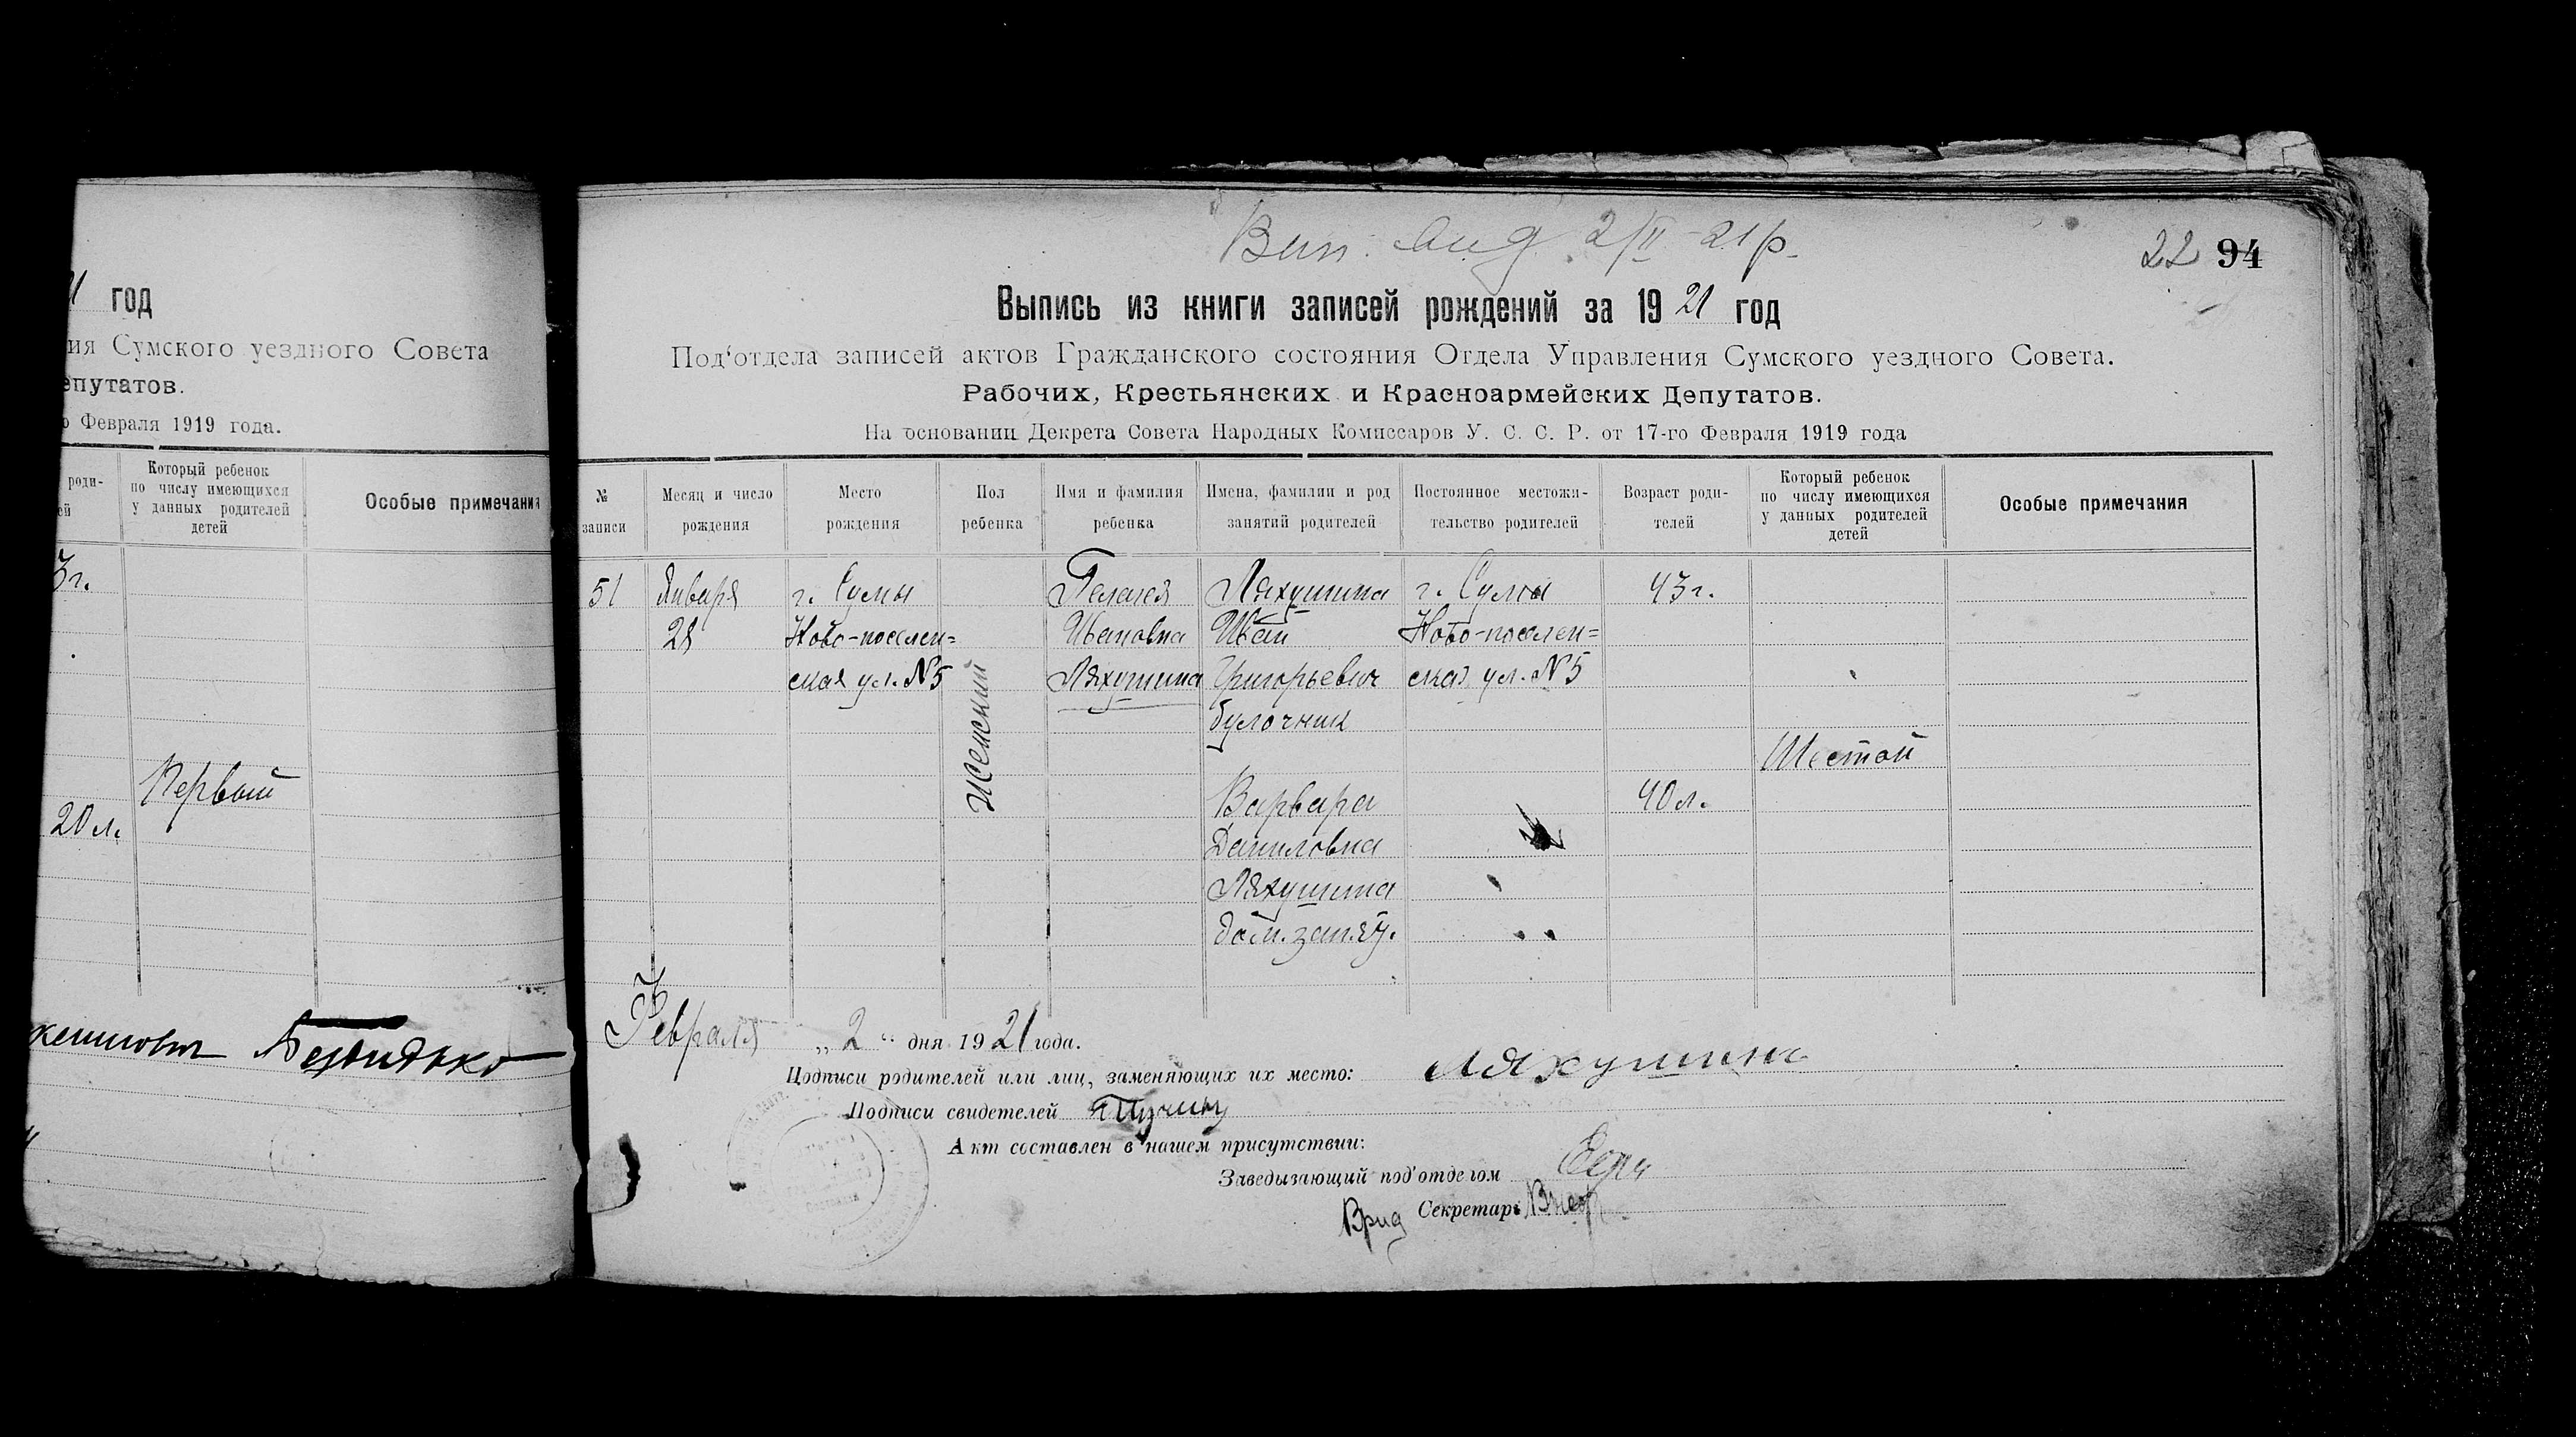 1 год
ия Сумского уездного Совета
епутатов.
о Февраля 1919 года.
роди-
ей
Который ребенок
по числу имеющихся
у данных родителей
детей
Особые примечания
3 г.
Первый
20 л.
22 94
Выпись из книги записей рождений за 1921 год
Под‘отдела записей актов Гражданского состояния Отдела Управления Сумского уездного Совета.
Рабочих, Крестьянских и Красноармейских Депутатов.
На основании Декрета Совета Народных Комиссаров У. С. С. Р. от 17-го Февраля 1919 года
№
записи
Месяц и число
рождения
Место
рождения
Пол
ребенка
Имя и фамилия
ребенка
Имена, фамилии и род
занятий родителей
Постоянное местожи-
тельство родителей
Возраст роди-
телей
Который ребенок
по числу имеющихся
у данных родителей
детей
Особые примечания
51
Января
28
г. Сумы
Ново-поселен=
ская ул. №5
Женский
Пелагея
Ивановна
Ляхушина
Ляхушина
Иван
Григорьевич
булочник
Варвара
Даниловна
Ляхушина
дом. занят.
г. Сумы
Ново-поселен=
ская ул. №5
43 г.
40 л.
Шестой
Февраля „2“ дня 1921 года.
Подписи родителей или лиц, заменяющих их место: Ляхушин
Подписи свидетелей
Акт составлен в нашем присутствии:
Заведывающий под‘отделом
Врид Секретарь